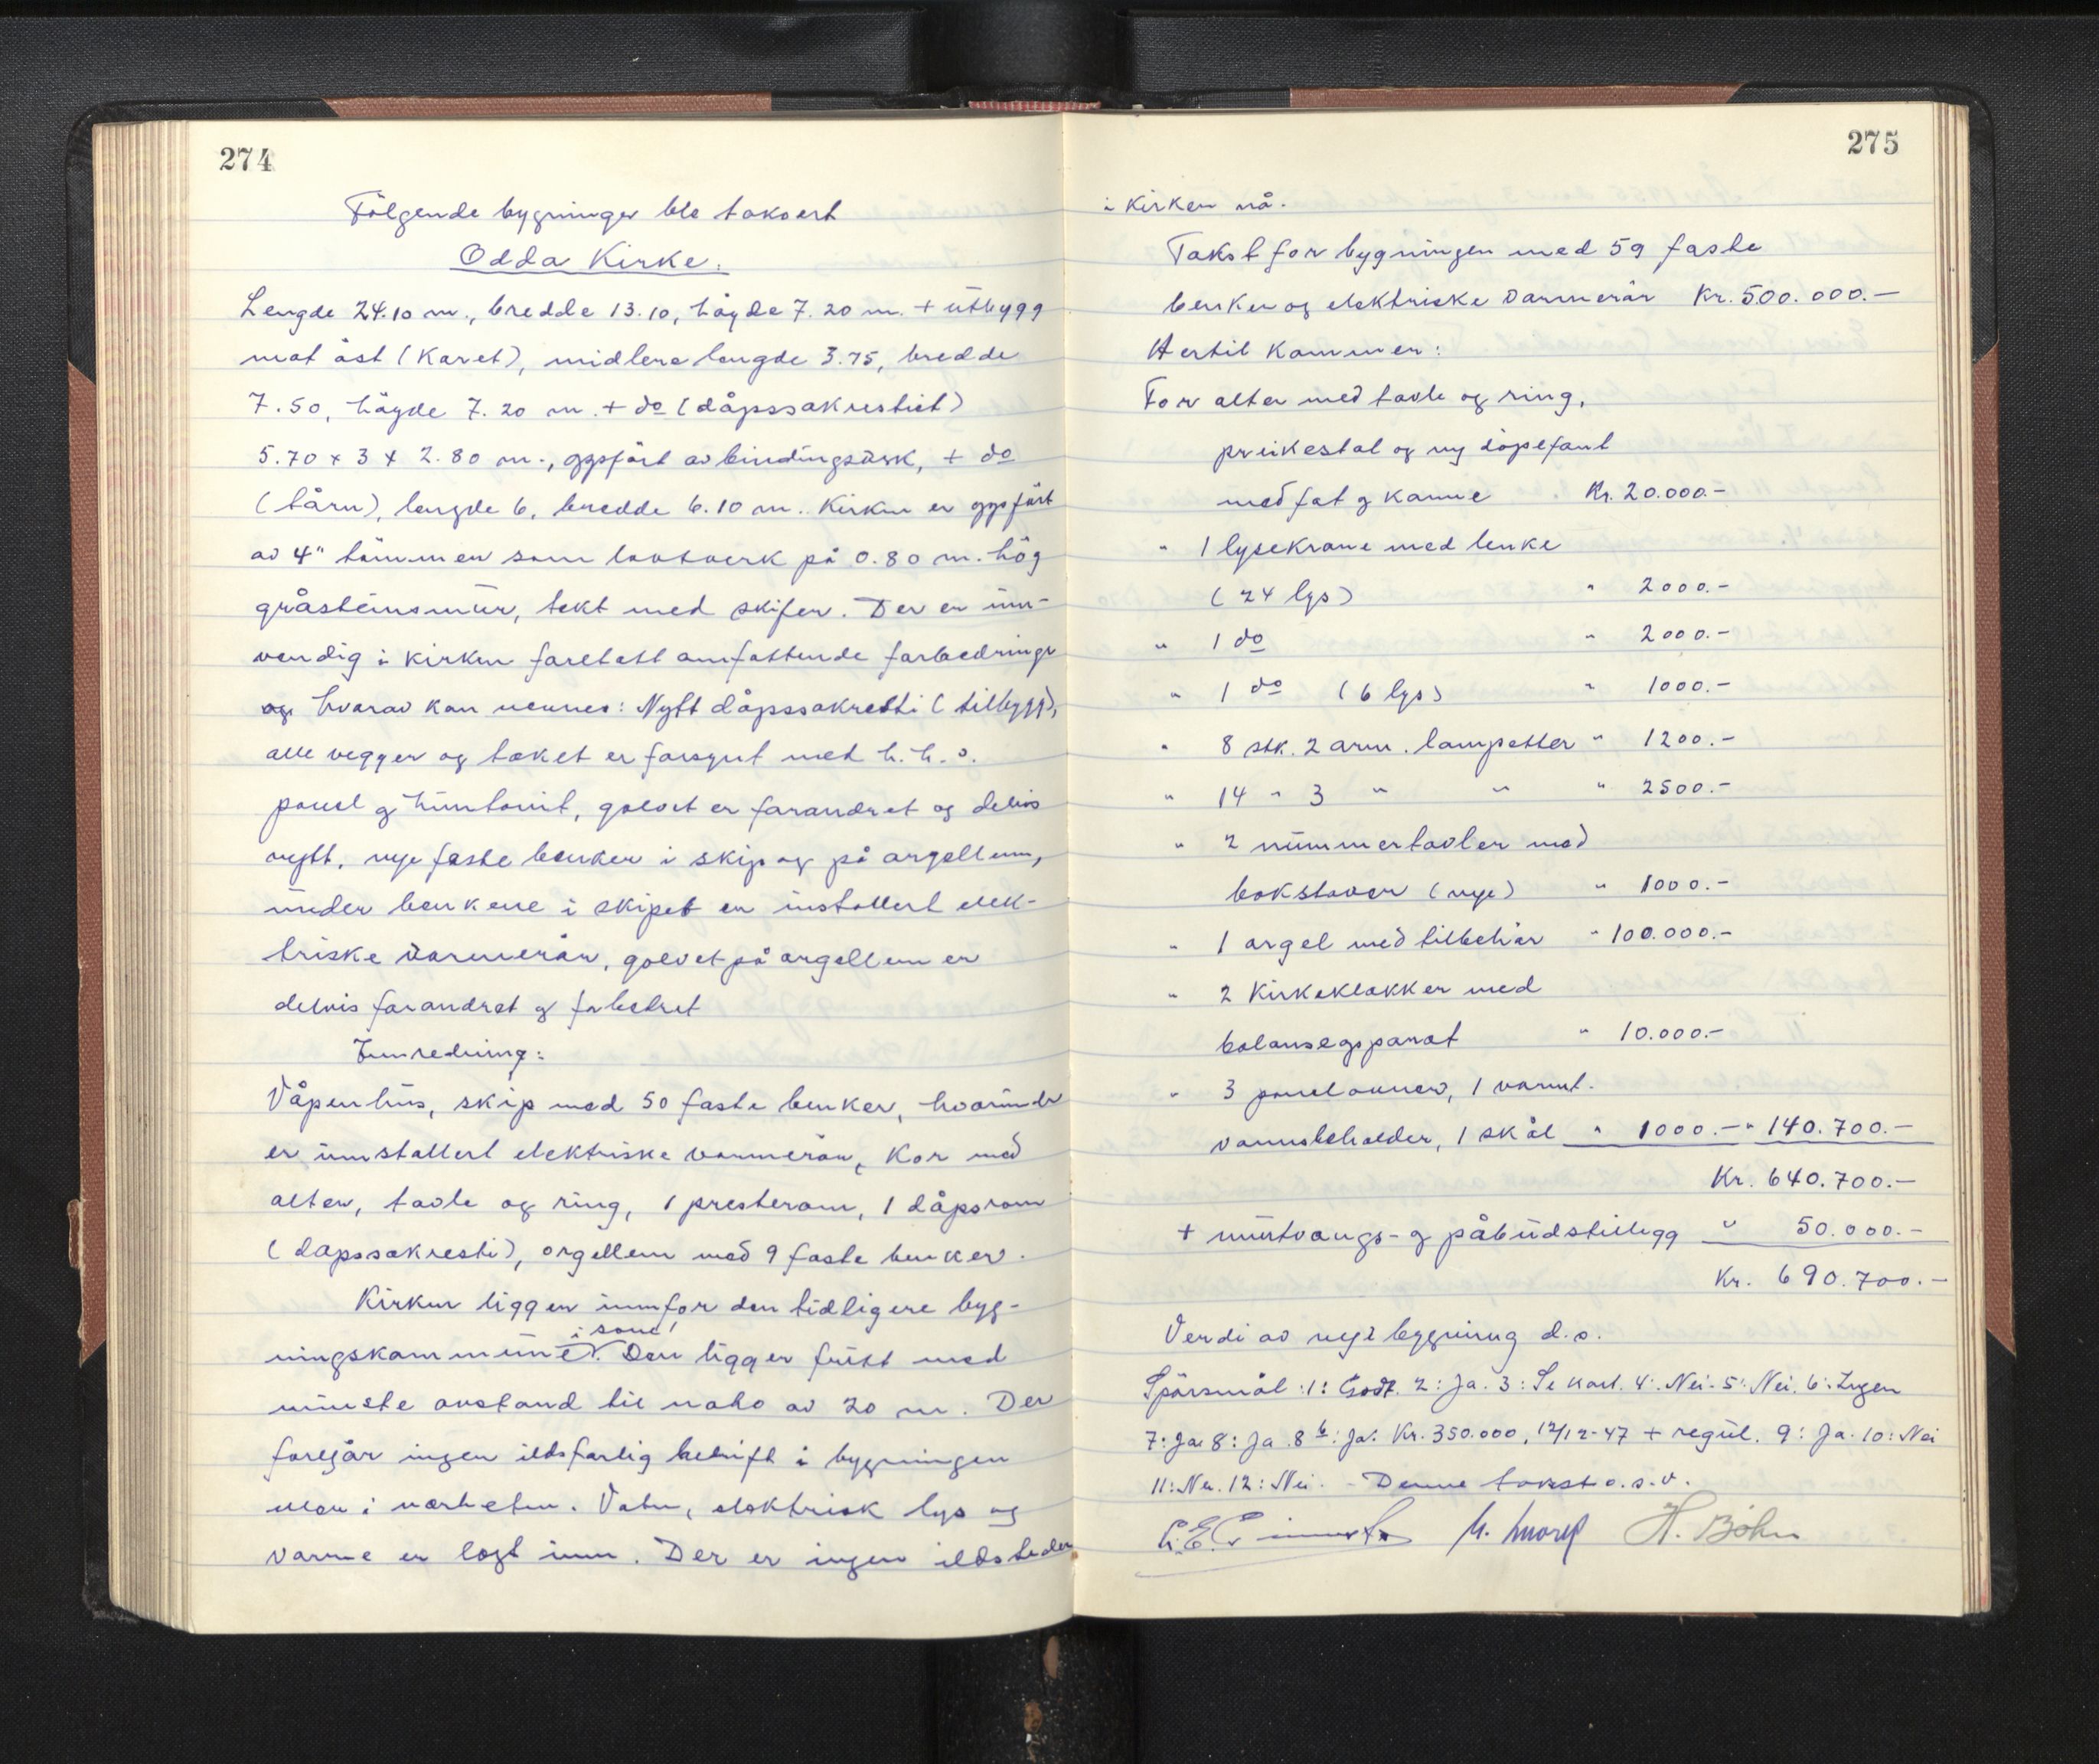 274
Følgende bygninger ble taksert
Odda Kirke.
Lengde 24.10 m., bredde 13.10, høyde 7.20 m. + utbygg
mot øst (Koret), midlere lengde 3.75, bredde
7.50, høyde 7.20 m. + do (dåpssakrestiet)
5.70 x 3 x 2.80 m., oppført av bindingsverk, + do
(tårn), lengde 6, bredde 6.10 m. Kirken er oppført
av 4" tømmer som lavtverk på 0.80 m. høg
gråsteinsmur, tekt med skifer. Der er inn-
vendig i kirken foretatt omfattende forbedringer
og hvorav kan nevnes: Nytt dåpssakresti (tilbygg),
alle vegger og taket er forsynt med h.h.v.
panel og huntonit, golvet er forandret og delvis
nytt, nye faste benker i skip og på orgellem,
under benkene i skipet er installert elek-
triske varmerør, golvet på orgellem er
delvis forandret og forbedret
Innredning:
Våpenhus, skip med 50 faste benker, hvorunder
er innstallert elektriske varmerør, Kor med
alter, tavle og ring, 1 presterom, 1 dåpsrom
(dåpssakresti), orgellem med 9 faste benker.
Kirken ligger innfor den tidligere byg-
i sone 1
ningskommune. Den ligger fritt med
minste avstand til nabo av 20 m. Der
foregår ingen ildsfarlig bedrift i bygningen
eller i nærheten. Vatn, elektrisk lys og
varme er lagt inn. Der er ingen ildsteder
275
i kirken nå.
Takst for bygningen med 59 faste
benker og elektriske varmerør Kr. 500.000.-
Hertil kommer:
For alter med tavle og ring,
preikestol og ny døpefont
med fat og kanne Kr. 20.000.-
" 1 lysekrone med lenke
(24 lys) " 2000.-
" 1 do " 2000.-
" 1 do (6 lys) " 1000.-
" 8 stk. 2 arm. lampetter " 1200.-
" 14 " 3 " " " 2500.-
" 2 nummertavler med
bokstaver (nye) " 1000.-
" 1 orgel med tilbehør " 100.000.-
" 2 Kirkeklokker med
balanseapparat " 10.000.-
" 3 panelovner, 1 varmt.
vannsbeholder, 1 skål " 1000.- " 140.700.-
Kr. 640.700.-
+ murtvangs- og påbudstillegg " 50.000.-
Kr. 690.700.-
Verdi av nye bygning d.s.
Spørsmål: 1: Godt. 2: Ja. 3: Se kart. 4: Nei. 5: Nei. 6: Ingen
7: Ja. 8: Ja. 8 b: Ja. Kr. 350.000, 12/12-47 + regul. 9: Ja. 10: Nei
11: Nei. 12: Nei. - Denne takst o.s.v.
H. Böhn